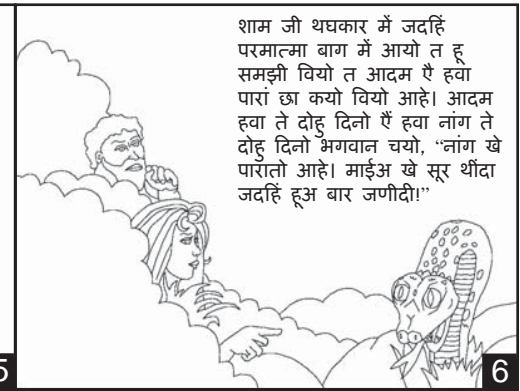 शाम जी थघकार में जदहिं
परमात्मा बाग में आयो त हू
समझी वियो त आदम ऐ हवा
पारां छा कयो वियो आहे। आदम
हवा ते दोहु दिनो ऐं हवा नांग ते
दोहु दिनो भगवान चयो, “नांग खे
पारातो आहे। माईअ खे सूर थींदा
जदहिं हूअ बार जणीदी!”
5
6